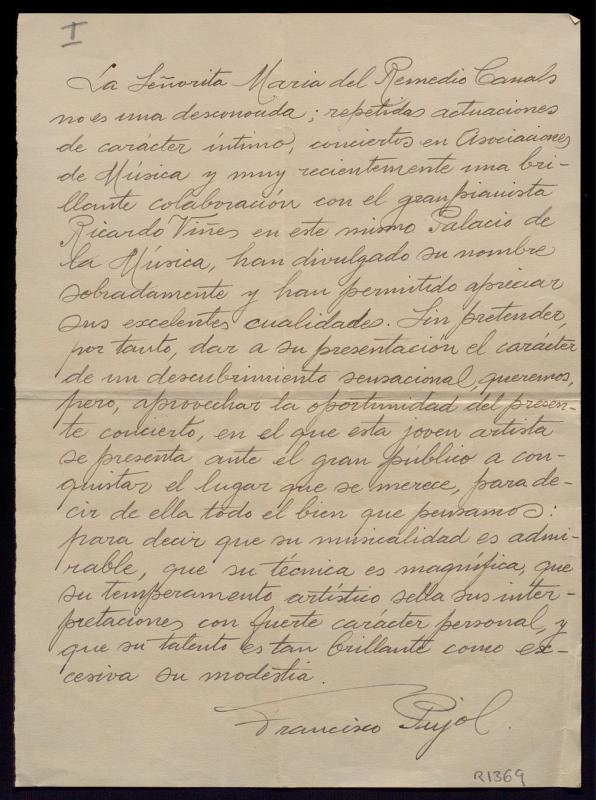 I
La Señorita Maria del Remedio Canals
no es una desconocida; repetidas actuaciones
de carácter íntimo, conciertos en Asociaciones
de Música y muy recientemente una bri-
llante colaboración con el gran pianista
Ricardo Viñes en este mismo Palacio de
la Música, han divulgado su nombre
sobradamente y han permitido apreciar
sus excelentes cualidades. Sin pretender,
por tanto, dar a su presentación el carácter
de un descubrimiento sensacional, queremos,
pero, aprovechar la oportunidad del presen-
te concierto, en el que esta joven artista
se presenta ante el gran publico a con-
quistar el lugar que se merece, para de-
cir de ella todo el bien que pensamos:
para decir que su musicalidad es admi-
rable, que su técnica es magnífica, que
su temperamento artístico sella sus inter-
pretaciones con fuerte carácter personal, y
que su talento es tan brillante como ex-
cesiva su modestia.
Francisco Pujol.
R1369